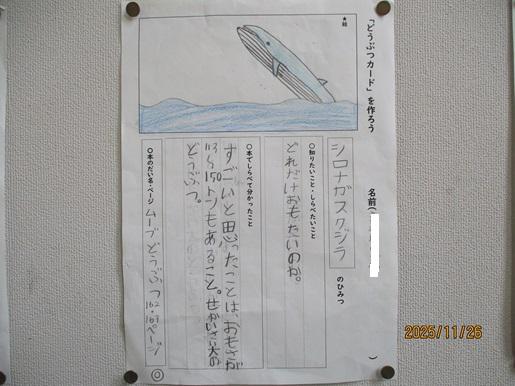 「どうぶつカード」を作ろう
名前(
)
シロナガスクジラ
のひみつ
○知りたいこと・しらべたいこと
どれだけおもたいのか。
○本でしらべて分かったこと
すごいと思ったことは、おもさが
113〜150トンもあること。せかいさい大の
どうぶつ。
○本のだい名・ページ
ムーブどうぶつ 162・163ページ
★絵
2025/11/26